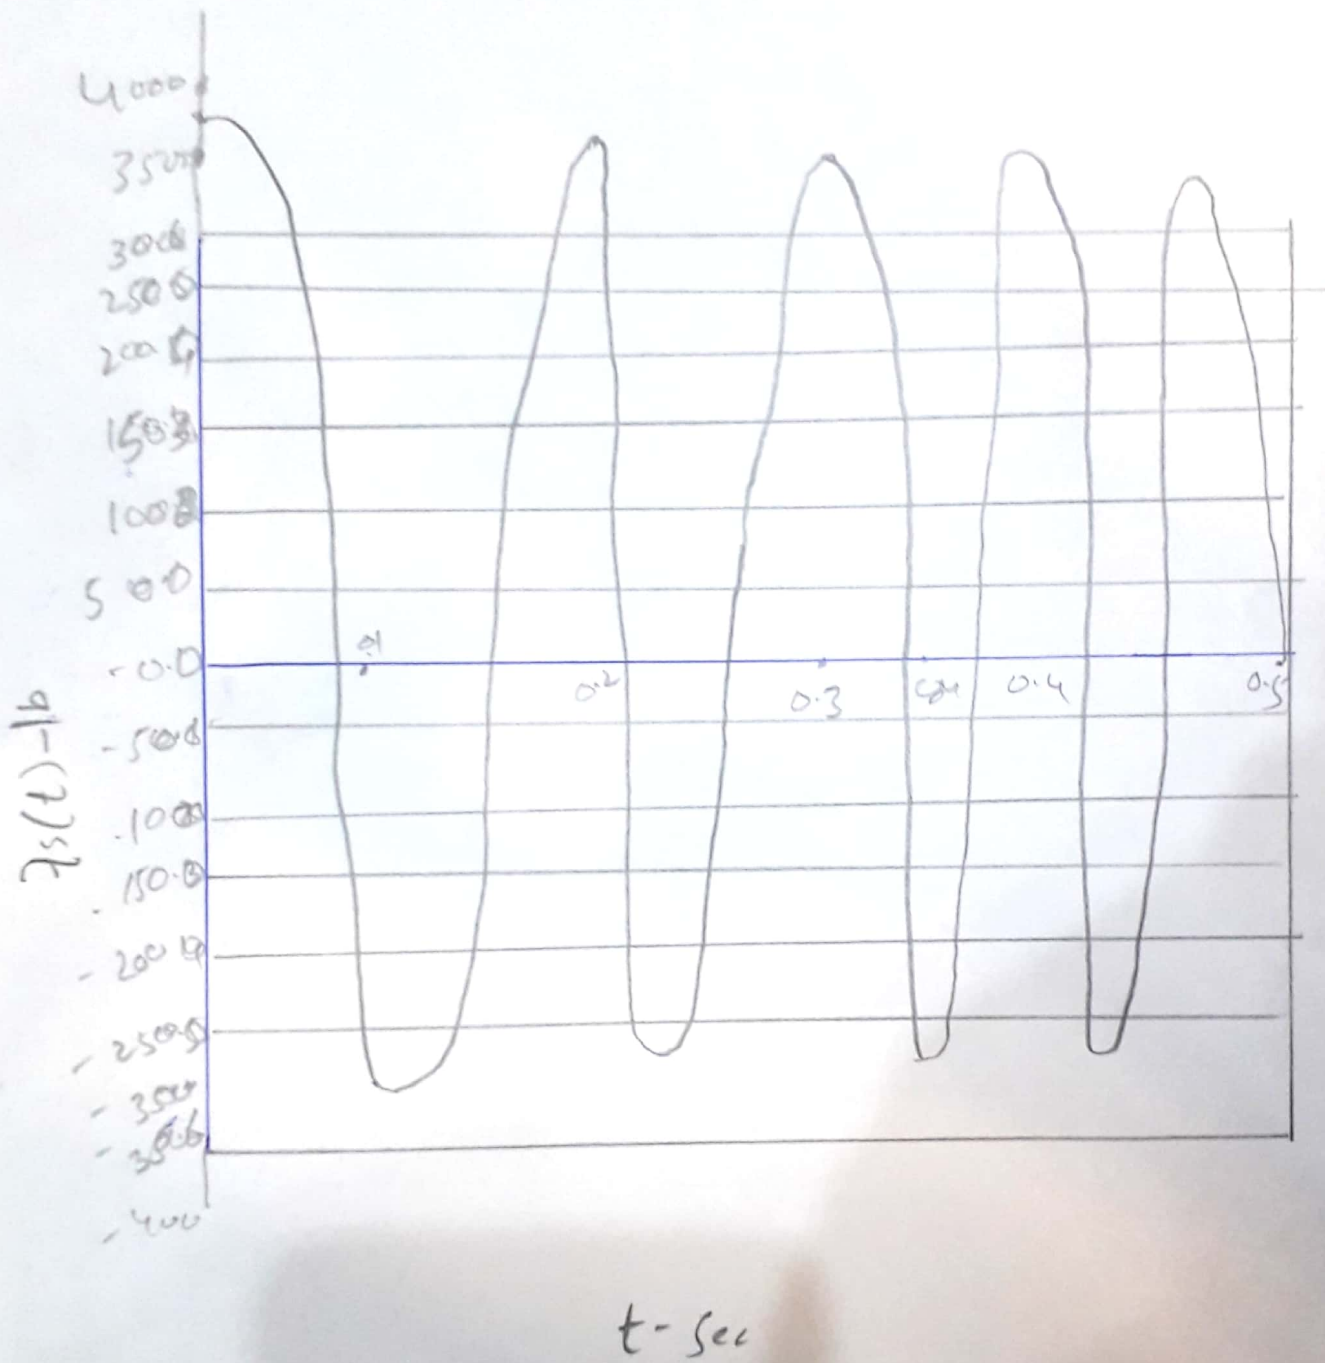 4000
3500
3000
2500
2000
1500
1000
500
-0.0
-500
-1000
-1500
-2000
-2500
-3500
-400
0.1
0.2
0.3
0.4
0.5
fs(t)-lb
t-sec